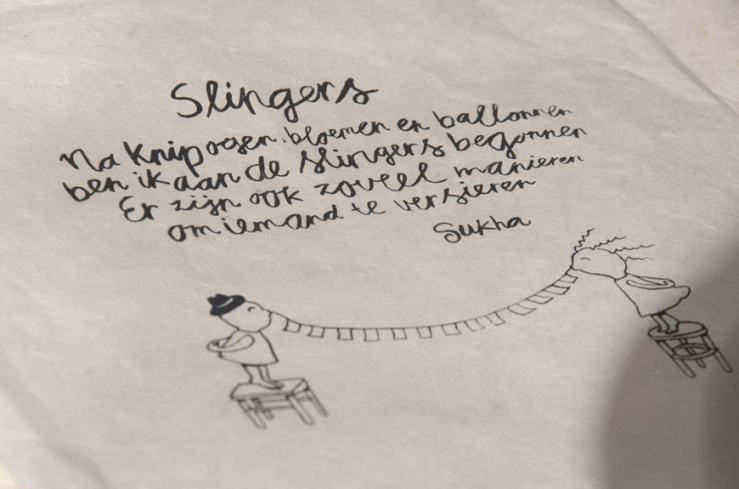 Slingers
Na knipogen, bloemen en ballonnen
ben ik aan de slingers begonnen
Er zijn ook zoveel manieren
om iemand te versieren
Sukha